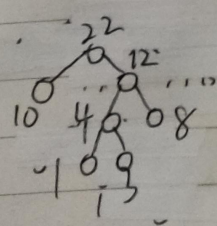 22
12
10
4
8
1
1